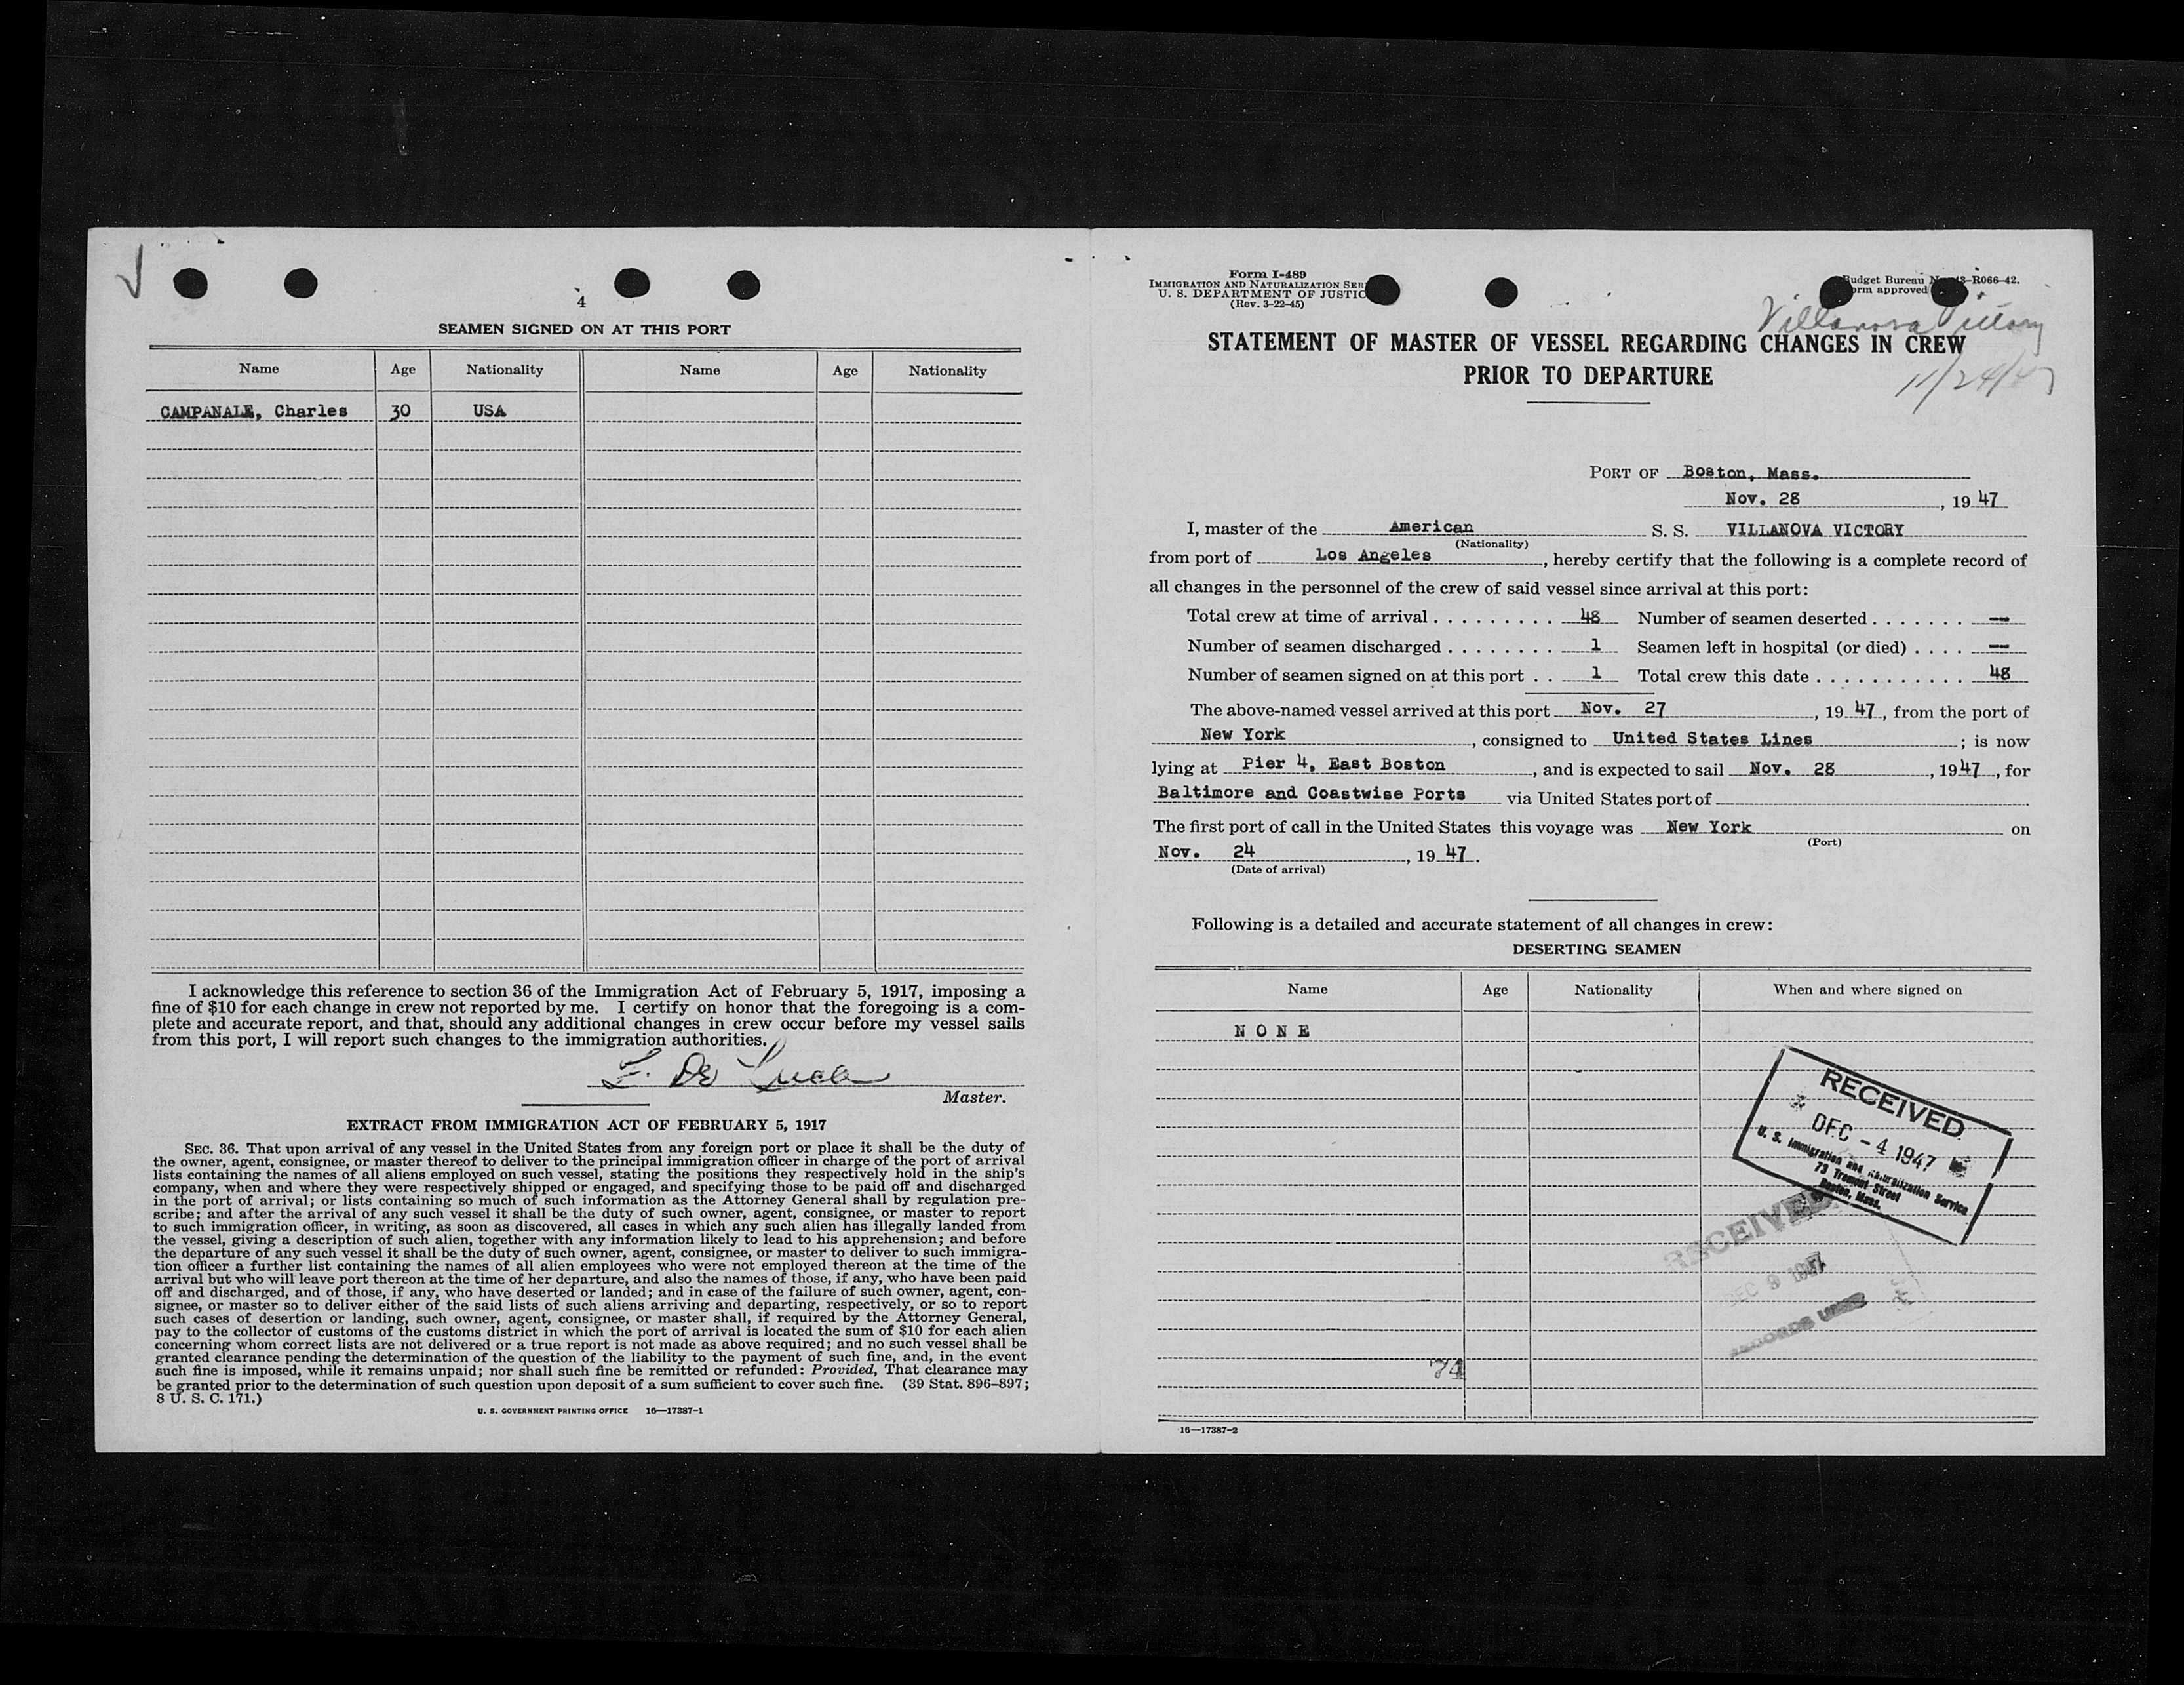 4
SEAMEN SIGNED ON AT THIS PORT
Name Age Nationality Name Age Nationality
CAMPANALE, Charles 30 USA
I acknowledge this reference to section 36 of the Immigration Act of February 5, 1917, imposing a
fine of $10 for each change in crew not reported by me. I certify on honor that the foregoing is a com-
plete and accurate report, and that, should any additional changes in crew occur before my vessel sails
from this port, I will report such changes to the immigration authorities.
L. De Luca
Master.
EXTRACT FROM IMMIGRATION ACT OF FEBRUARY 5, 1917
SEC. 36. That upon arrival of any vessel in the United States from any foreign port or place it shall be the duty of
the owner, agent, consignee, or master thereof to deliver to the principal immigration officer in charge of the port of arrival
lists containing the names of all aliens employed on such vessel, stating the positions they respectively hold in the ship's
company, when and where they were respectively shipped or engaged, and specifying those to be paid off and discharged
in the port of arrival; or lists containing so much of such information as the Attorney General shall by regulation pre-
scribe; and after the arrival of any such vessel it shall be the duty of such owner, agent, consignee, or master to report
to such immigration officer, in writing, as soon as discovered, all cases in which any such alien has illegally landed from
the vessel, giving a description of such alien, together with any information likely to lead to his apprehension; and before
the departure of any such vessel it shall be the duty of such owner, agent, consignee, or master to deliver to such immigra-
tion officer a further list containing the names of all alien employees who were not employed thereon at the time of the
arrival but who will leave port thereon at the time of her departure, and also the names of those, if any, who have been paid
off and discharged, and of those, if any, who have deserted or landed; and in case of the failure of such owner, agent, con-
signee, or master so to deliver either of the said lists of such aliens arriving and departing, respectively, or so to report
such cases of desertion or landing, such owner, agent, consignee, or master shall, if required by the Attorney General,
pay to the collector of customs of the customs district in which the port of arrival is located the sum of $10 for each alien
concerning whom correct lists are not delivered or a true report is not made as above required; and no such vessel shall be
granted clearance pending the determination of the question of the liability to the payment of such fine, and, in the event
such fine is imposed, while it remains unpaid; nor shall such fine be remitted or refunded: Provided, That clearance may
be granted prior to the determination of such question upon deposit of a sum sufficient to cover such fine. (39 Stat. 896–897;
8 U. S. C. 171.)
U. S. GOVERNMENT PRINTING OFFICE 16—17387-1
Form I-489
IMMIGRATION AND NATURALIZATION SER
U. S. DEPARTMENT OF JUSTIC
(Rev. 3-22-45)
Budget Bureau R066-42.
orm approved
Villanova Victory
11/24/47
STATEMENT OF MASTER OF VESSEL REGARDING CHANGES IN CREW
PRIOR TO DEPARTURE
PORT OF Boston, Mass.
Nov. 28, 1947
I, master of the American S. S. VILLANOVA VICTORY
(Nationality)
from port of Los Angeles, hereby certify that the following is a complete record of
all changes in the personnel of the crew of said vessel since arrival at this port:
Total crew at time of arrival . . . . . . . . . 48 Number of seamen deserted . . . . . . . —
Number of seamen discharged . . . . . . . . 1 Seamen left in hospital (or died) . . . . —
Number of seamen signed on at this port . . 1 Total crew this date . . . . . . . . . . . 48
The above-named vessel arrived at this port Nov. 27, 1947, from the port of
New York, consigned to United States Lines; is now
lying at Pier 4, East Boston, and is expected to sail Nov. 28, 1947, for
Baltimore and Coastwise Ports via United States port of
The first port of call in the United States this voyage was New York on
(Port)
Nov. 24, 1947.
(Date of arrival)
Following is a detailed and accurate statement of all changes in crew:
DESERTING SEAMEN
Name Age Nationality When and where signed on
NONE
RECEIVED
DEC - 4 1947
U. S. Immigration and Naturalization Service
73 Tremont Street
Boston, Mass.
RECEIVED
DEC 9 1947
RECORDS
74
16—17387-2